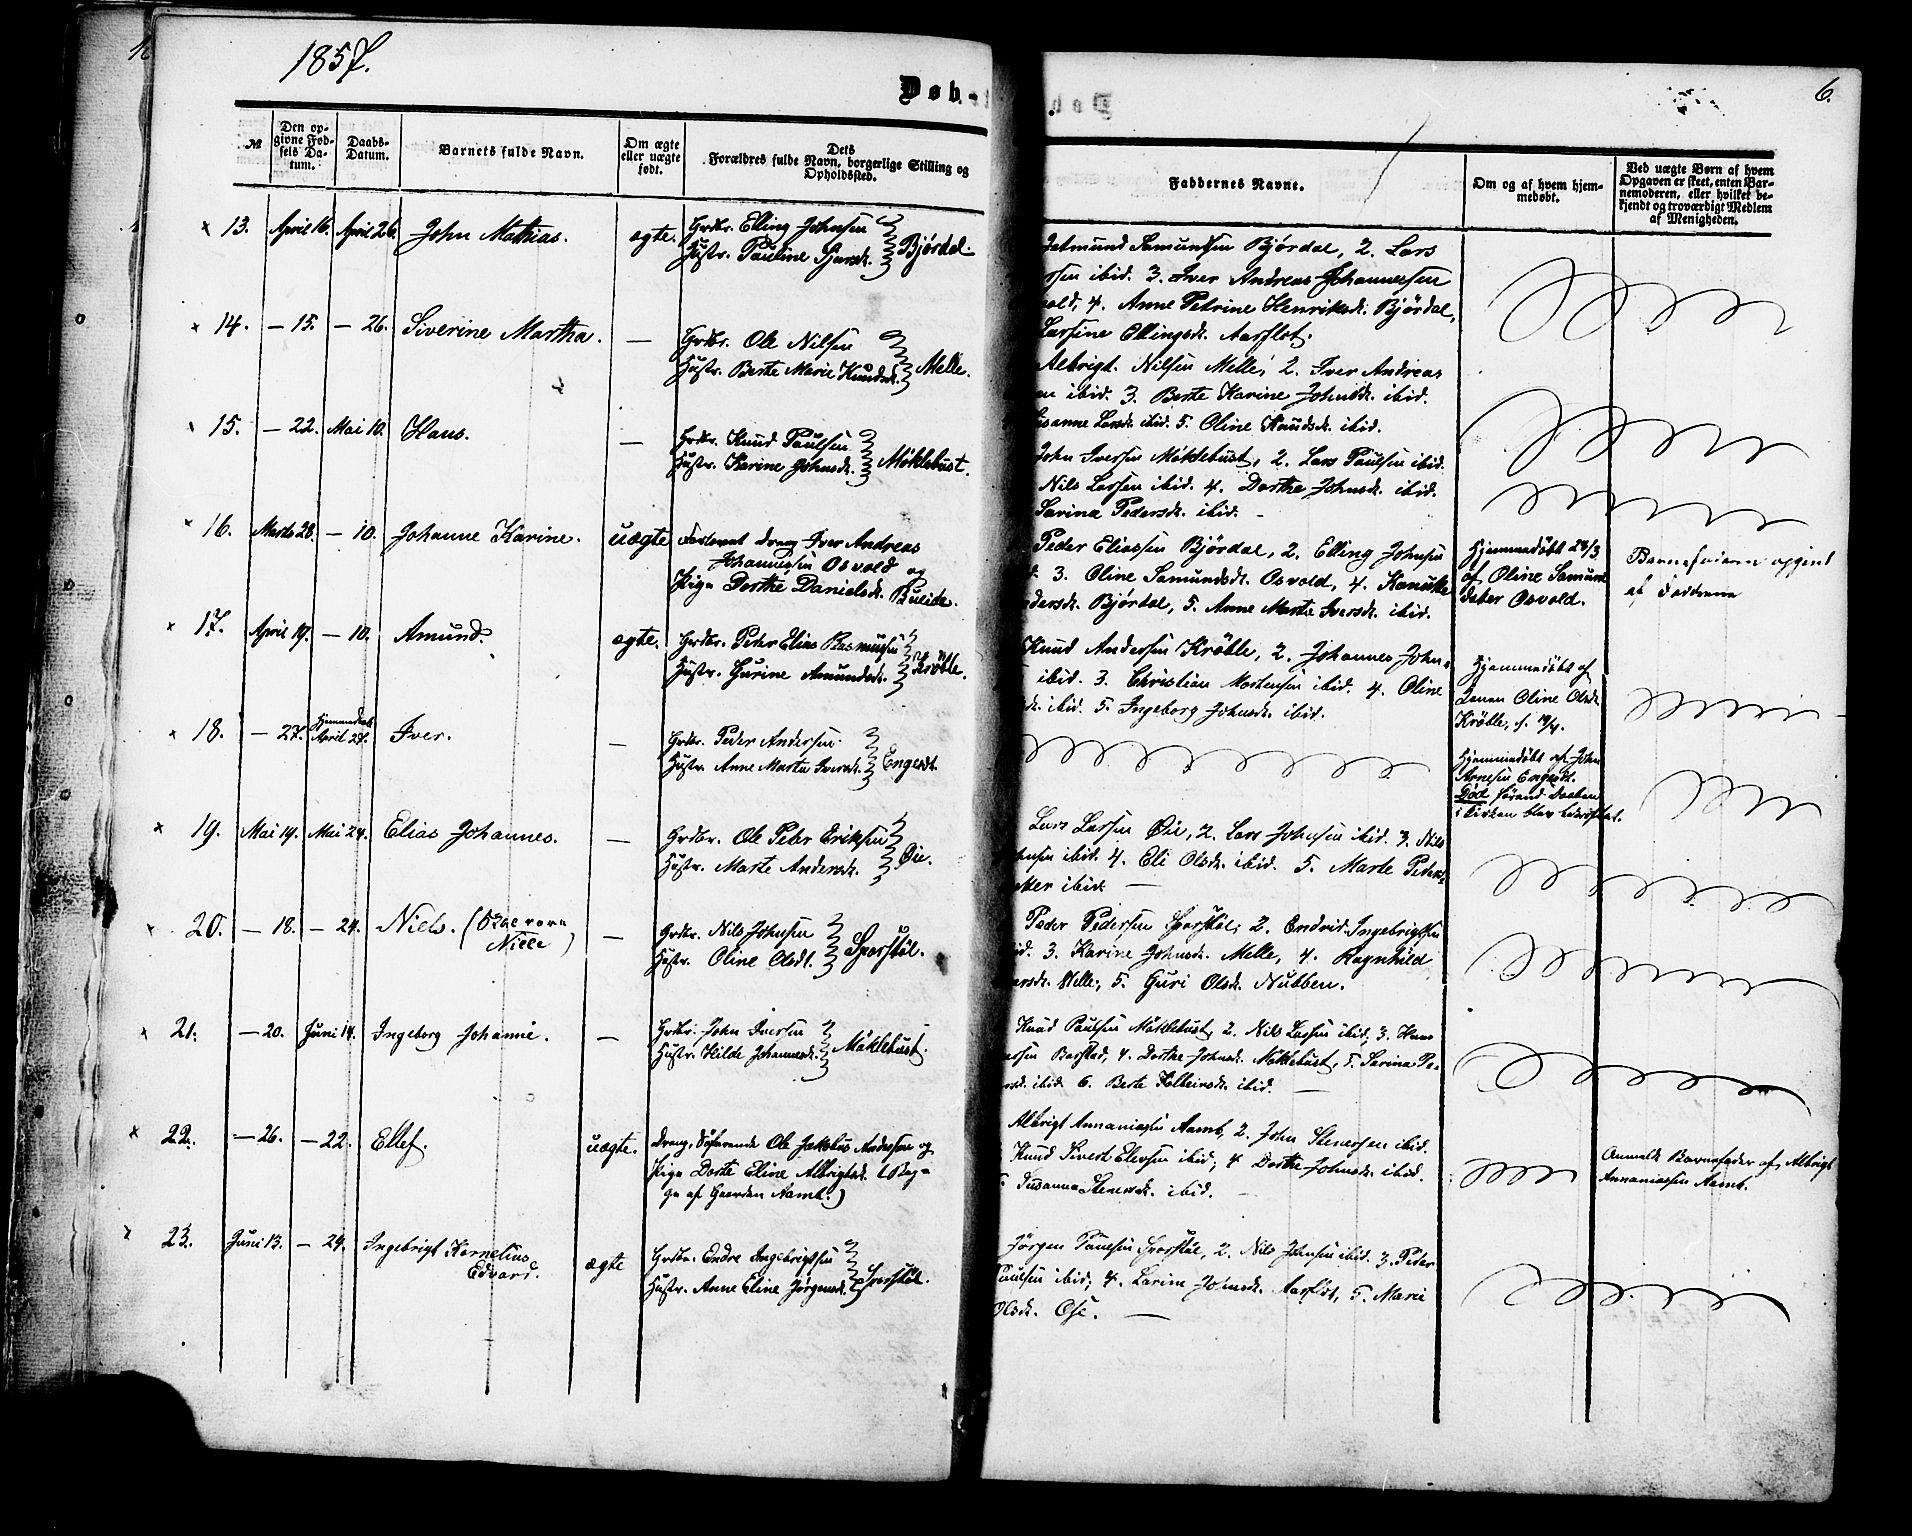 1857.
Døb-
6.
№
Den opgivne Fødsels Datum.
Daabs-Datum.
Barnets fulde Navn.
Om ægte eller uægte født.
Dets Forældres fulde Navn, borgerlige Stilling og Opholdssted.
Faddernes Navne.
Om og af hvem hjemmedøbt.
Ved uægte Børn af hvem Opgaven er skeet, enten Barnemoderen, eller hvilket bekjendt og troværdigt Medlem af Menigheden.
13. April 16. April 26. John Mathias. ægte. Grdbr. Elling Johnsen
Hustr. Pauline Bjørdal.
Samundsen Bjørdal, 2. Lars
ibid. 3. Iver Andreas Johannessen
4. Anne Petrine Henriksdr. Bjørdal,
Larsine Ellingsdr. Aarflot.
14. — 15. — 26. Siverine Martha. — Grdbr. Ole Nilsen
Hustr. Berte Marie Knudsdr. Melle.
Albrigt Nilsen Melle, 2. Iver Andreas
ibid. 3. Berte Karine Johnsdr. ibid.
Susanne Larsdr. ibid. 5. Oline Knudsdr. ibid.
15. — 22. Mai 10. Hans. — Grdbr. Knud Paulsen
Hustr. Karine Johnsdr. Møklebust.
John Iversen Møklebust, 2. Lars Paulsen ibid.
Nils Larsen ibid. 4. Dorthe Johnsdr. ibid.
Sarina Pedersdr. ibid. —
16. Marts 28. — 10. Johanne Karine. uægte Dreng Iver Andreas
Johannessen Osvold og
Pige Dorthe Danielsdr.
Peder Eliassen Bjørdal, 2. Elling Johnsen
3. Oline Samundsdr. Osvold, 4.
Bjørdal, 5. Anne Marte Iversdr. ibid.
Hjemmedøbt 28/3
af Oline Samunds
datter Osvold.
opgivet
af Fadderne
17. April 19. — 10. Amund. ægte. Grdbr. Peder Elias Rasmussen
Hustr. Gurine Amundsdr. Krøvle.
Knud Andersen Krøvle, 2. Johannes John-
ibid. 3. Christian Mortensen ibid. 4. Oline
ibid. 5. Ingeborg Johnsdr. ibid.
Hjemmedøbt af
Oline Olsdr.
Krøvle, d. 19/4.
18. — 27. Hjemmedøbt
April 27. Iver. — Grdbr. Peder Andersen
Hustr. Anne Marta Iversdr. Engesdt.
Hjemmedøbt af John
Arnesen Engesdt.
Død førend Daaben
i Kirken blev bekræftet.
19. Mai 19. Mai 24. Elias Johannes. — Grdbr. Ole Peter Eriksen
Hustr. Marte Andersdr. Øie.
Lars Larsen Øie, 2. Lars Johnsen ibid. 3. Nils
ibid. 4. Eli Olsdr. ibid. 5. Marte Peders-
datter ibid. —
20. — 18. — 24. Niels. — Grdbr. Nils Johnsen
Hustr. Oline Olsdt. Sporstøl.
Peder Pedersen Sporstøl, 2. Endrid Ingebrigtsen
3. Karine Johnsdr. Melle, 4. Ragnhild
Melle, 5. Guri Olsdr. Nubben.
21. — 20. Juni 14. Ingeborg Johanne. — Grdbr. John Iversen
Hustr. Hilde Johannesdr. Møklebust.
Knud Paulsen Møklebust, 2. Nils Larsen ibid, 3. Hans
Barstad, 4. Dorthe Johnsdr. Møklebust, 5. Sarina Pe-
ibid. 6. Berte ibid. —
22. — 26. — 22. Ellef. uægte. Dreng, Søfarende Ole Jakobus Andersen og
Pige Dorte Eline Albrigtsdr. (begge
af Gaarden Aamb.)
Albrigt Annaniassen Aamb, 2. John Stenersen ibid.
Knud Sivert ibid; 4. Dorthe Johnsdr. ibid.
Susanna Stenersdr. ibid. —
Anmeldt Barnefader af Albrigt
Annaniassen Aamb.
23. Juni 13. — 29. Ingebrigt Kornelius
Edvard. ægte Grdbr. Endre Ingebrigtsen
Hustr. Anne Eline Jørgensdr. Sporstøl.
Jørgen Paulsen Sporstøl, 2. Nils Johnsen ibid. 3. Peder
Paulsen ibid; 4. Larine Johnsdr. Aarflot, 5. Marie
Olsdr. Ose. —